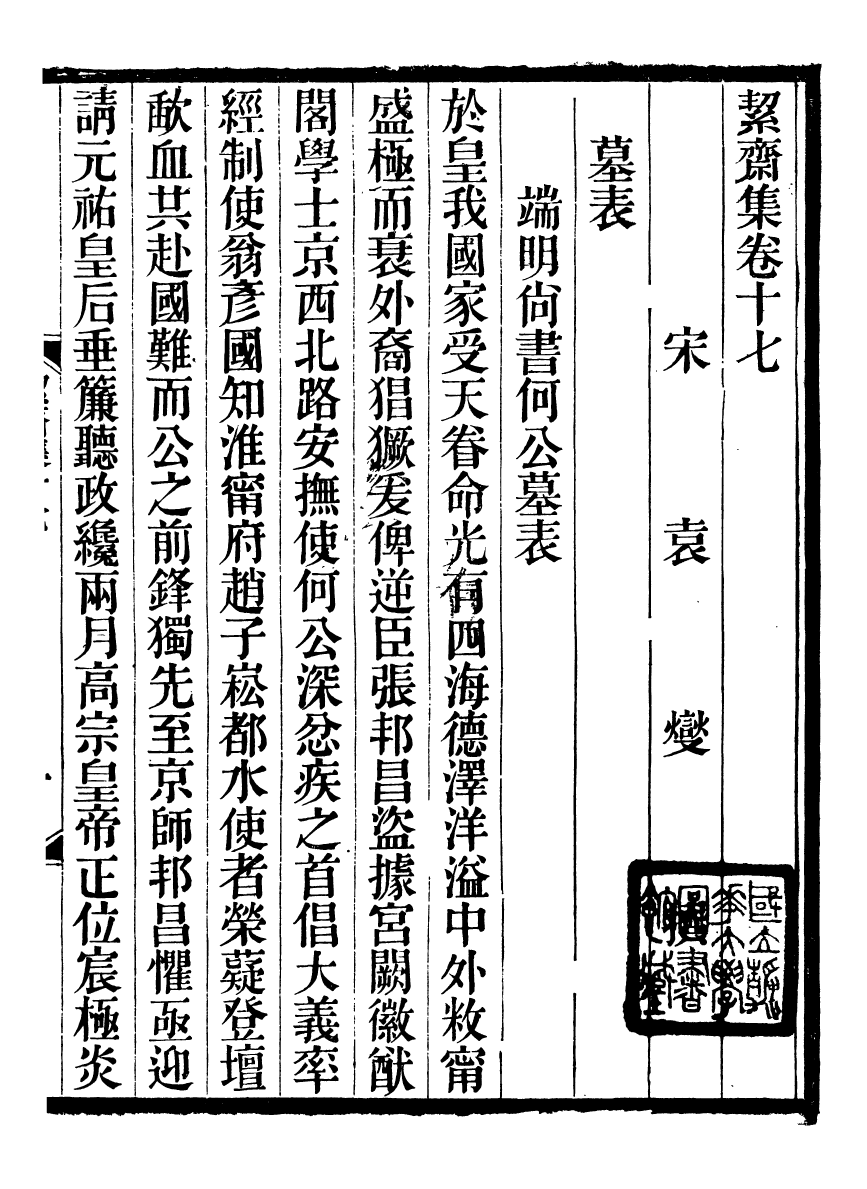 絜齋集卷十七
宋　袁　燮
墓表
端明尙書何公墓表
於皇我國家受天眷命光有四海德澤洋溢中外敉甯
盛極而衰外裔猖獗爰俾逆臣張邦昌盜據宮闕徽猷
閣學士京西北路安撫使何公深忿疾之首倡大義率
經制使翁彥國知淮甯府趙子崧都水使者榮薿登壇
歃血共赴國難而公之前鋒獨先至京師邦昌懼亟迎
請元祐皇后垂簾聽政纔兩月高宗皇帝正位宸極炎